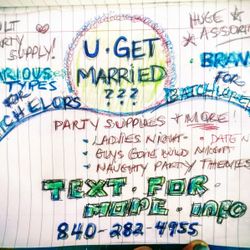 ULT
RTY
SUPPLY!
VARIOUS
TYPES
FOR
CHELORS
U. GET
MARRIED
???
HUGE
ASSORT
BRAW
FOR
BACHLOR
PARTY SUPPLIES + MORE!
• LADIES NIGHT - DATE N
• GUYS GONE WILD NIGHT
• NAUGHTY PARTY THEMES
TEXT. FOR.
MORE. info
840-282-4955